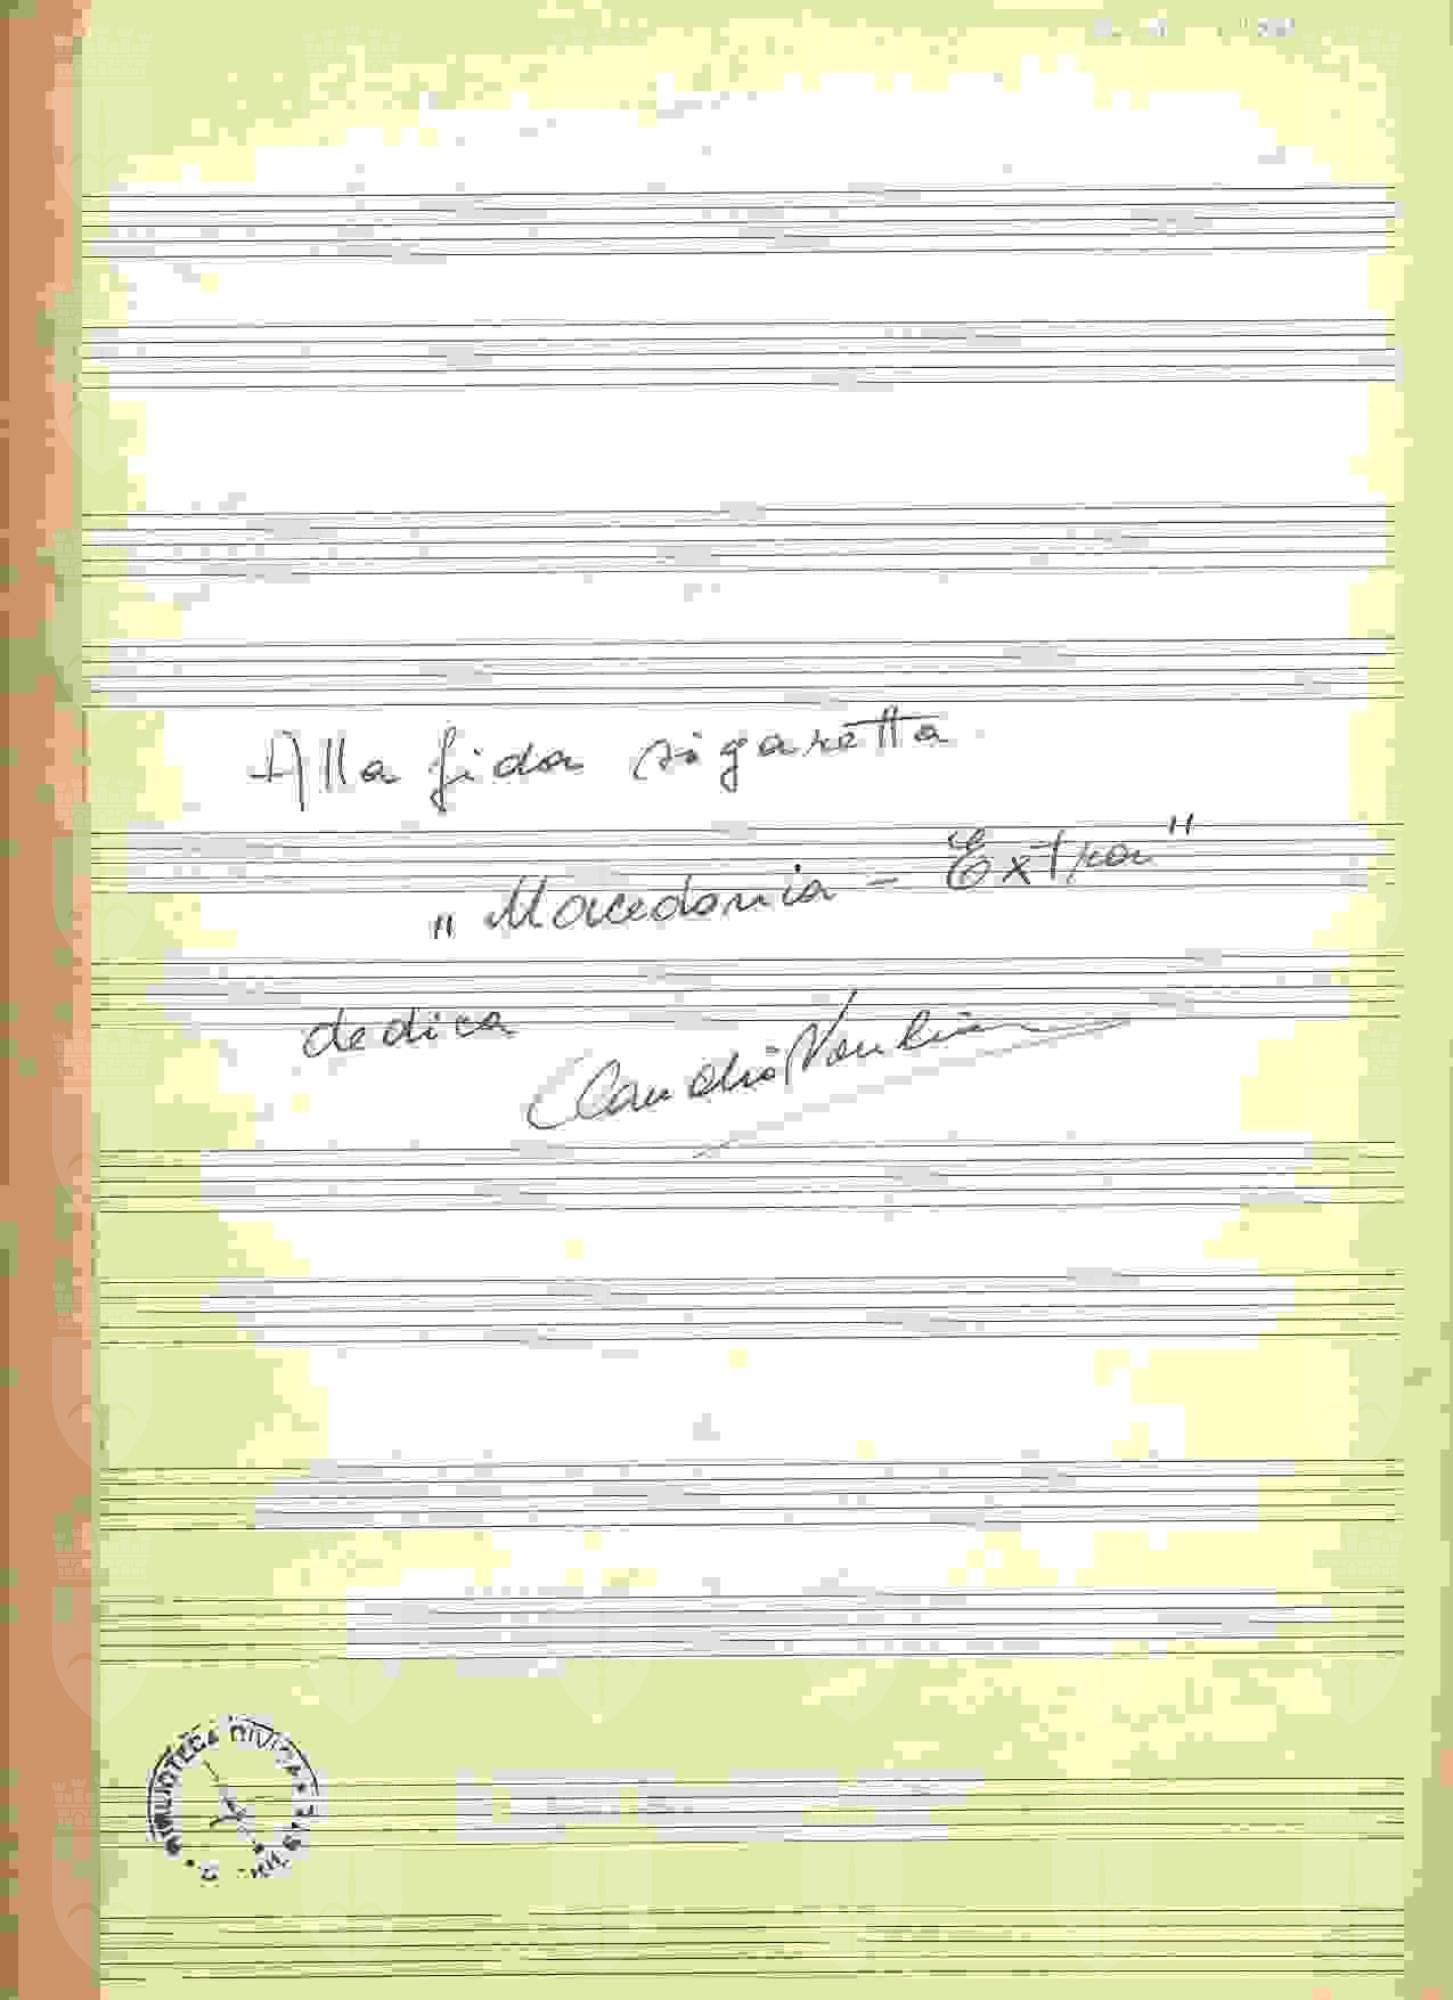 Alla fida sigaretta
"Macedonia - Extra"
dedica
Claudio
BIBLIOTECA CIVICA